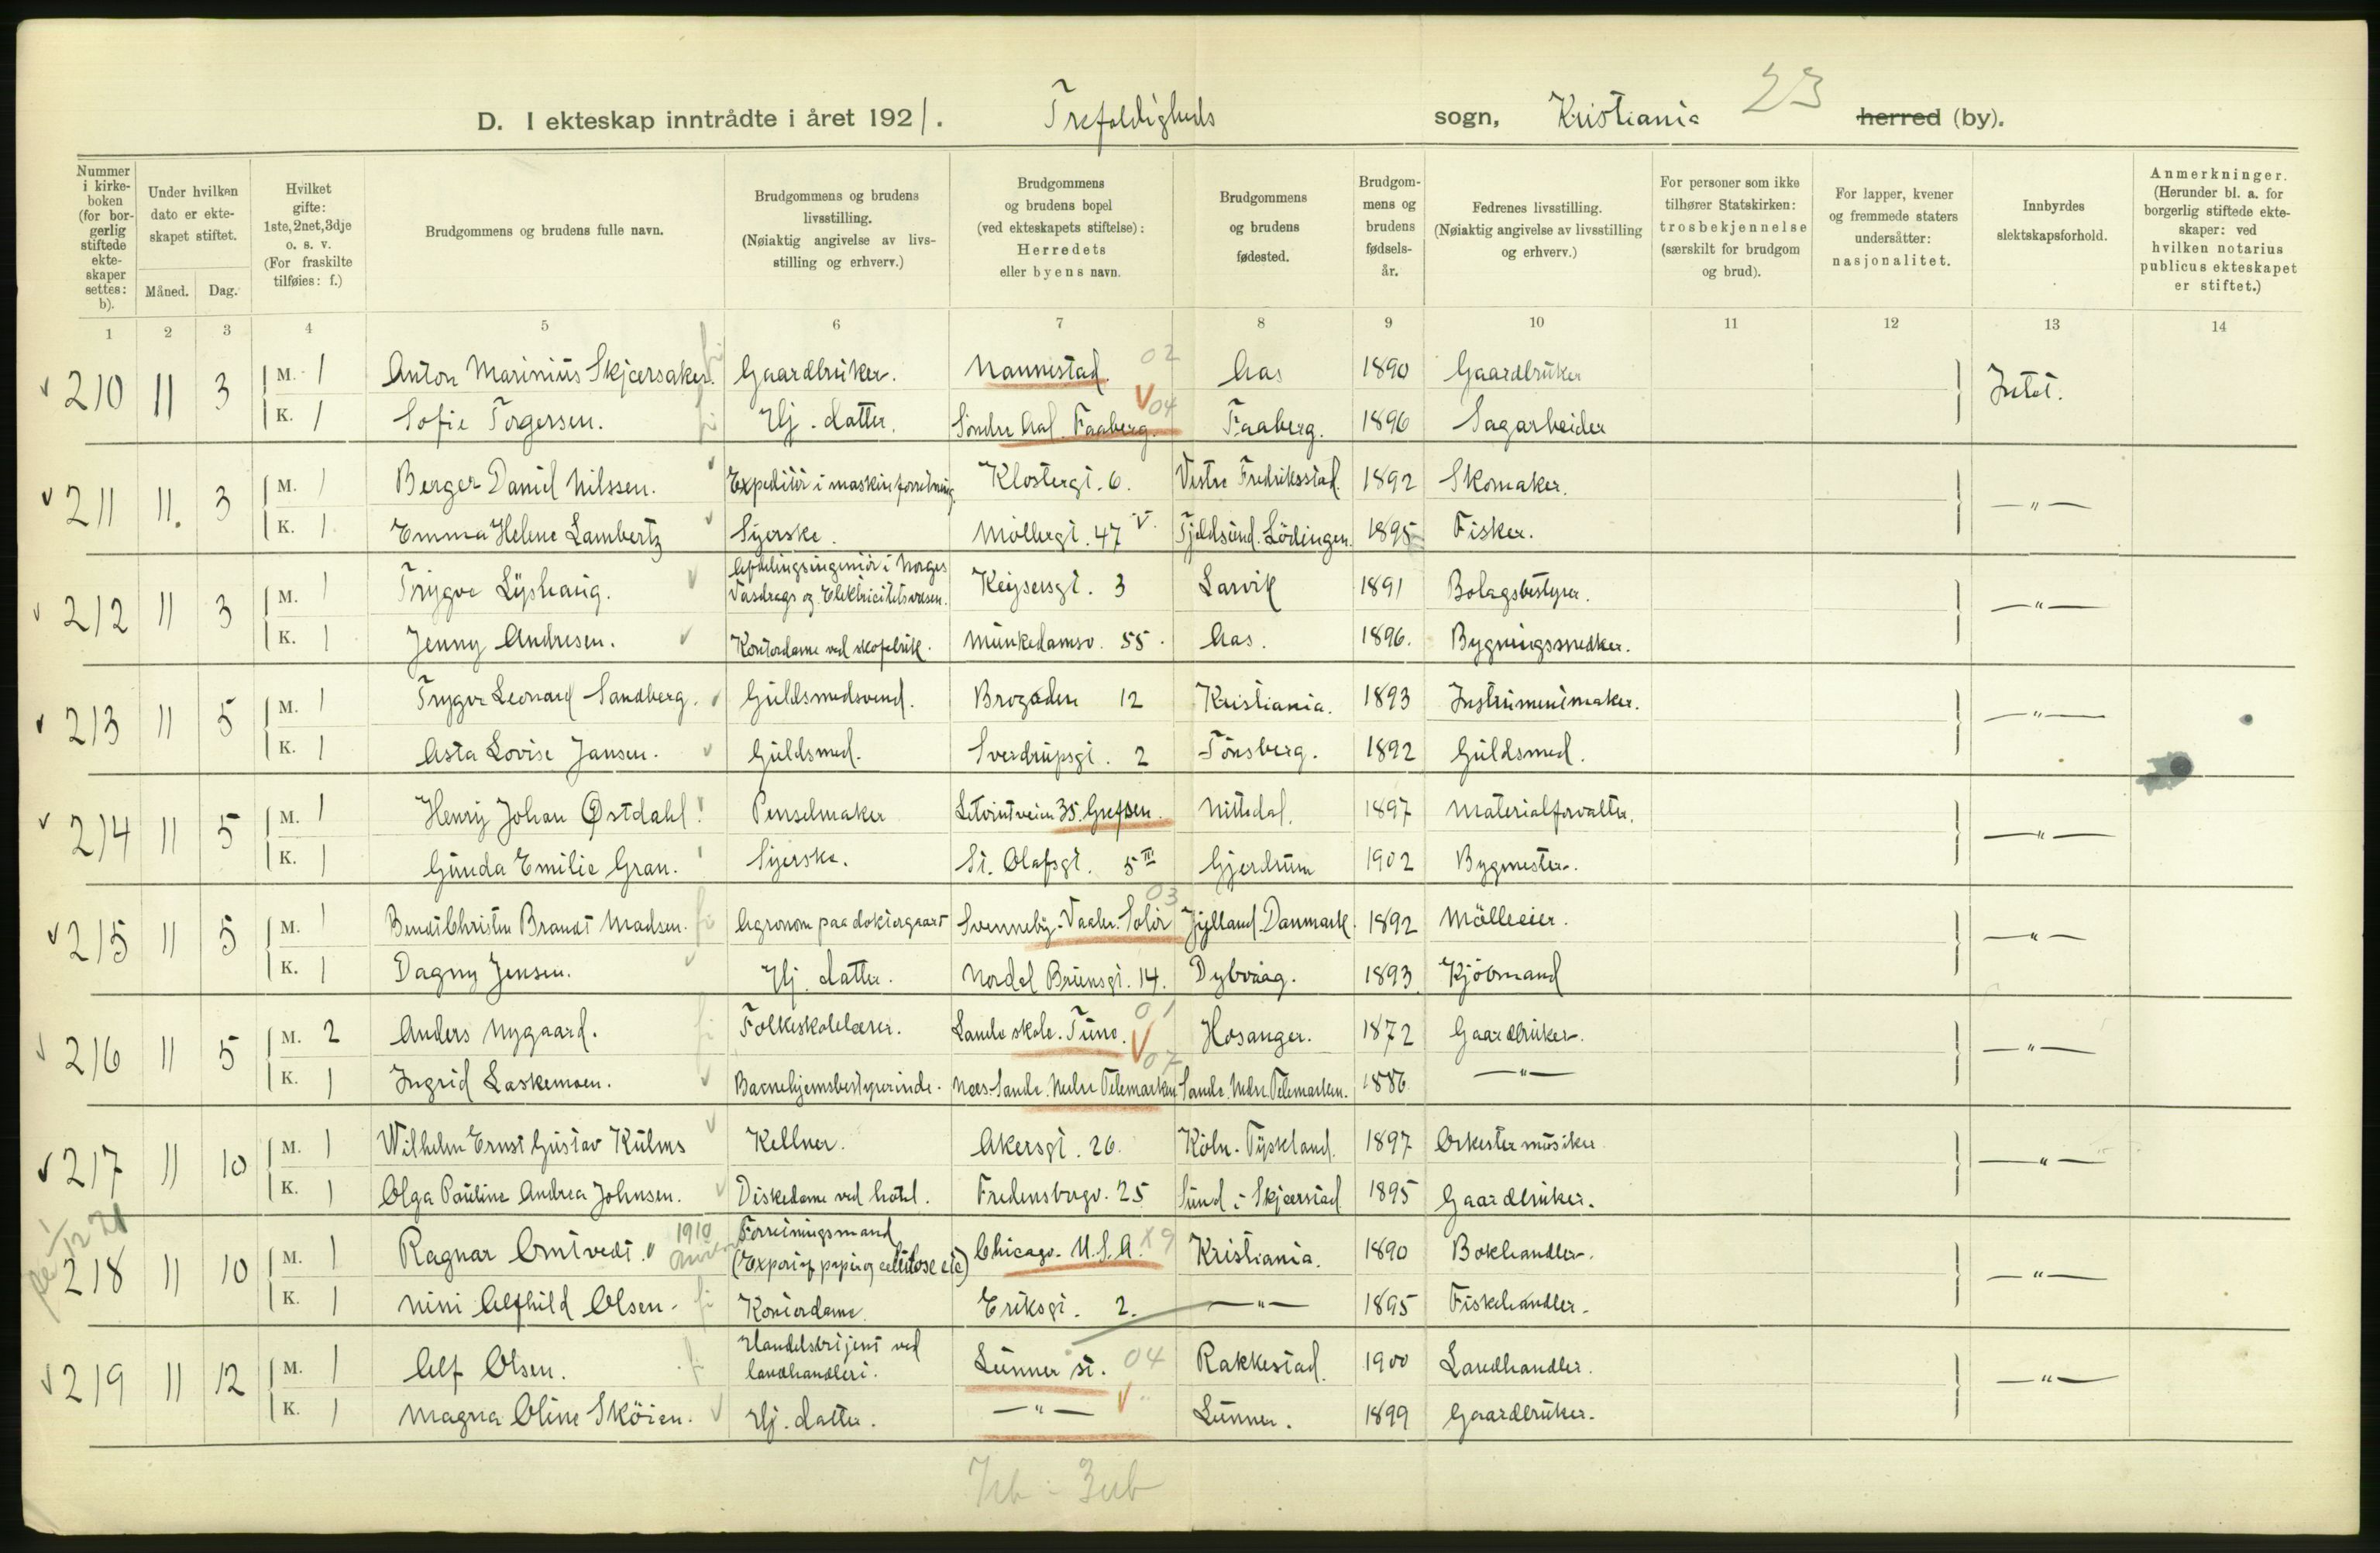 23
D. I ekteskap inntrådte i året 1921. Trefoldigheds sogn, Kristiania herred (by).
Nummer i kirkeboken (for borgerlig stiftede ekteskaper settes: b).
Under hvilken dato er ekteskapet stiftet.
Måned. Dag.
Hvilket gifte: 1ste, 2net, 3dje o. s. v. (For fraskilte tilføies: f.)
Brudgommens og brudens fulle navn.
Brudgommens og brudens livsstilling. (Nøiaktig angivelse av livsstilling og erhverv.)
Brudgommens og brudens bopel (ved ekteskapets stiftelse): Herredets eller byens navn.
Brudgommens og brudens fødested.
Brudgommens og brudens fødselsår.
Fedrenes livsstilling. (Nøiaktig angivelse av livsstilling og erhverv.)
For personer som ikke tilhører Statskirken: trosbekjennelse (særskilt for brudgom og brud).
For lapper, kvener og fremmede staters undersåtter: nasjonalitet.
Innbyrdes slektskapsforhold.
Anmerkninger. (Herunder bl. a. for borgerlig stiftede ekteskaper: ved hvilken notarius publicus ekteskapet er stiftet.)
1 2 3 4 5 6 7 8 9 10 11 12 13 14
210 11 3 M. 1 Anton Marinius Skjærsaker. Gaardbruker. Nannestad. 02 Aas 1890 Gaardbruker Intet.
K. 1 Sofie Torgersen. Hj. datter. Söndre Aal. Faaberg. 04 Faaberg. 1896 Sagarbeider
211 11. 3 M. 1 Berger Daniel Nilssen. Expeditör i maskinforretning. Klostergt. 6. Vestre Fredriksstad. 1892 Skomaker. —"—
K. 1 Emma Helene Lambertz Syerske. Möllergt. 47 V. Tjeldsund. Lödingen. 1895 Fisker.
212 11 3 M. 1 Trygve Lyshaug. Afdelingsingeniör i Norges Vasdrags og Elektricitetsvæsen. Keysersgt. 3 Larvik 1891 Bolagsbestyrer. —"—
K. 1 Jenny Andresen. Kontordame ved skofabrik. Munkedamsv. 55. Aas. 1896. Bygningssnedker.
213 11 5 M. 1 Trygve Leonard Sandberg. Guldsmedsvend. Brogaden 12 Kristiania. 1893 Instrumentmaker. —"—
K. 1 Asta Lovise Jansen. Guldsmed. Sverdrupsgt. 2 Tönsberg. 1892 Guldsmed.
214 11 5 M. 1 Henry Johan Østdahl Penselmaker 35. Grefsen. Nittedal. 1897 Materialforvalter. —"—
K. 1 Gunda Emilie Gran. Syerske. St. Olafsgt. 5 III Gjerdrum 1902 Bygmester.
215 11 5 M. 1 Bendt Christen Brandt Madsen. Agronom paa doktorgaard Svenneby. Vaaler. Solör 03 Jylland Danmark. 1892 Mölleeier. —"—
K. 1 Dagny Jensen. Hj. datter. Nordal Brunsgt. 14. Dybvaag. 1893 Kjöbmand
216 11 5 M. 2 Anders Nygaard. Folkeskolelærer. Sande skole. Tune. 01 Hosanger. 1872 Gaardbruker. —"—
K. 1 Ingrid Laskemoen. Barnehjemsbestyrerinde. Næs. Sande. Nedre Telemarken 07 Sande. Nedre Telemarken. 1886 —"—
217 11 10 M. 1 Wilhelm Ernst Gustav Kulms Kellner. Akersgt. 26. Köln. Tyskland. 1897 Orkestermusiker —"—
K. 1 Olga Pauline Andrea Johnsen. Diskedame ved hotel. Fredensborgv. 25 Sund i Skjærstad 1895 Gaardbruker.
218 11 10 M. 1 Ragnar Omtvedt. 1910 Forretningsmand (Export af papir og cellulose etc) Chicago. U.S.A. X9 Kristiania. 1890 Bokhandler. —"—
K. 1 Nini Alfhild Olsen. Kontordame. Eriksgt. 2. —"— 1895 Fiskehandler.
219 11 12 M. 1 Alf Olsen. Handelsbetjent ved landhandleri. Lunner st. 04 Rakkestad. 1900 Landhandler. —"—
K. 1 Magna Oline Sköien. Hj. datter. —"— Lunner. 1899 Gaardbruker.